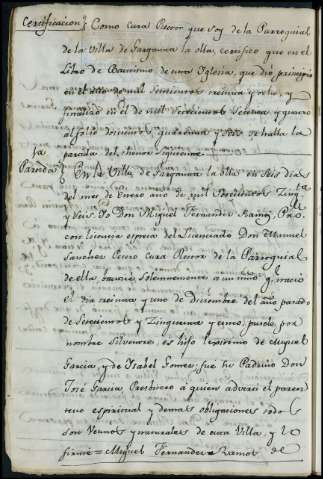 Certificacion} Como Cura Rector que soy de la Parroquial
de la Villa de Garganta la olla, certifico que en el
Libro de Bautismo de dicha Iglesia, que dio principio
en el año de mil setecientos treinta y ocho, y
finalizo en el de mil setecientos setenta y quatro
al folio doscientos quarenta y se halla la
partida del thenor siguiente
Partida} En la Villa de Garganta la olla en seis dias
del mes de Enero año de mil setecientos Zinqta
y seis Yo Don Miguel Fernandez Ramos Pro
con licencia expresa del Licenciado Don Manuel
Sanchez Cerro Cura Rector de la Parroquial
de ella bautize solemnemente a un niño q nacio
el dia treinta y uno de diciembre del año pasado
de setecientos y Zinquenta y cinco, pusele por
nombre Silvestre, es hijo lexitimo de Miguel
Garcia y de Isabel Gomez, fue su Padrino Don
José Garcia Presbitero a quien adverti el paren
tesco espiritual y demas obligaciones todos
son Vecinos y naturales de esta Villa, y lo
firme = Miguel Fernandez Ramos de